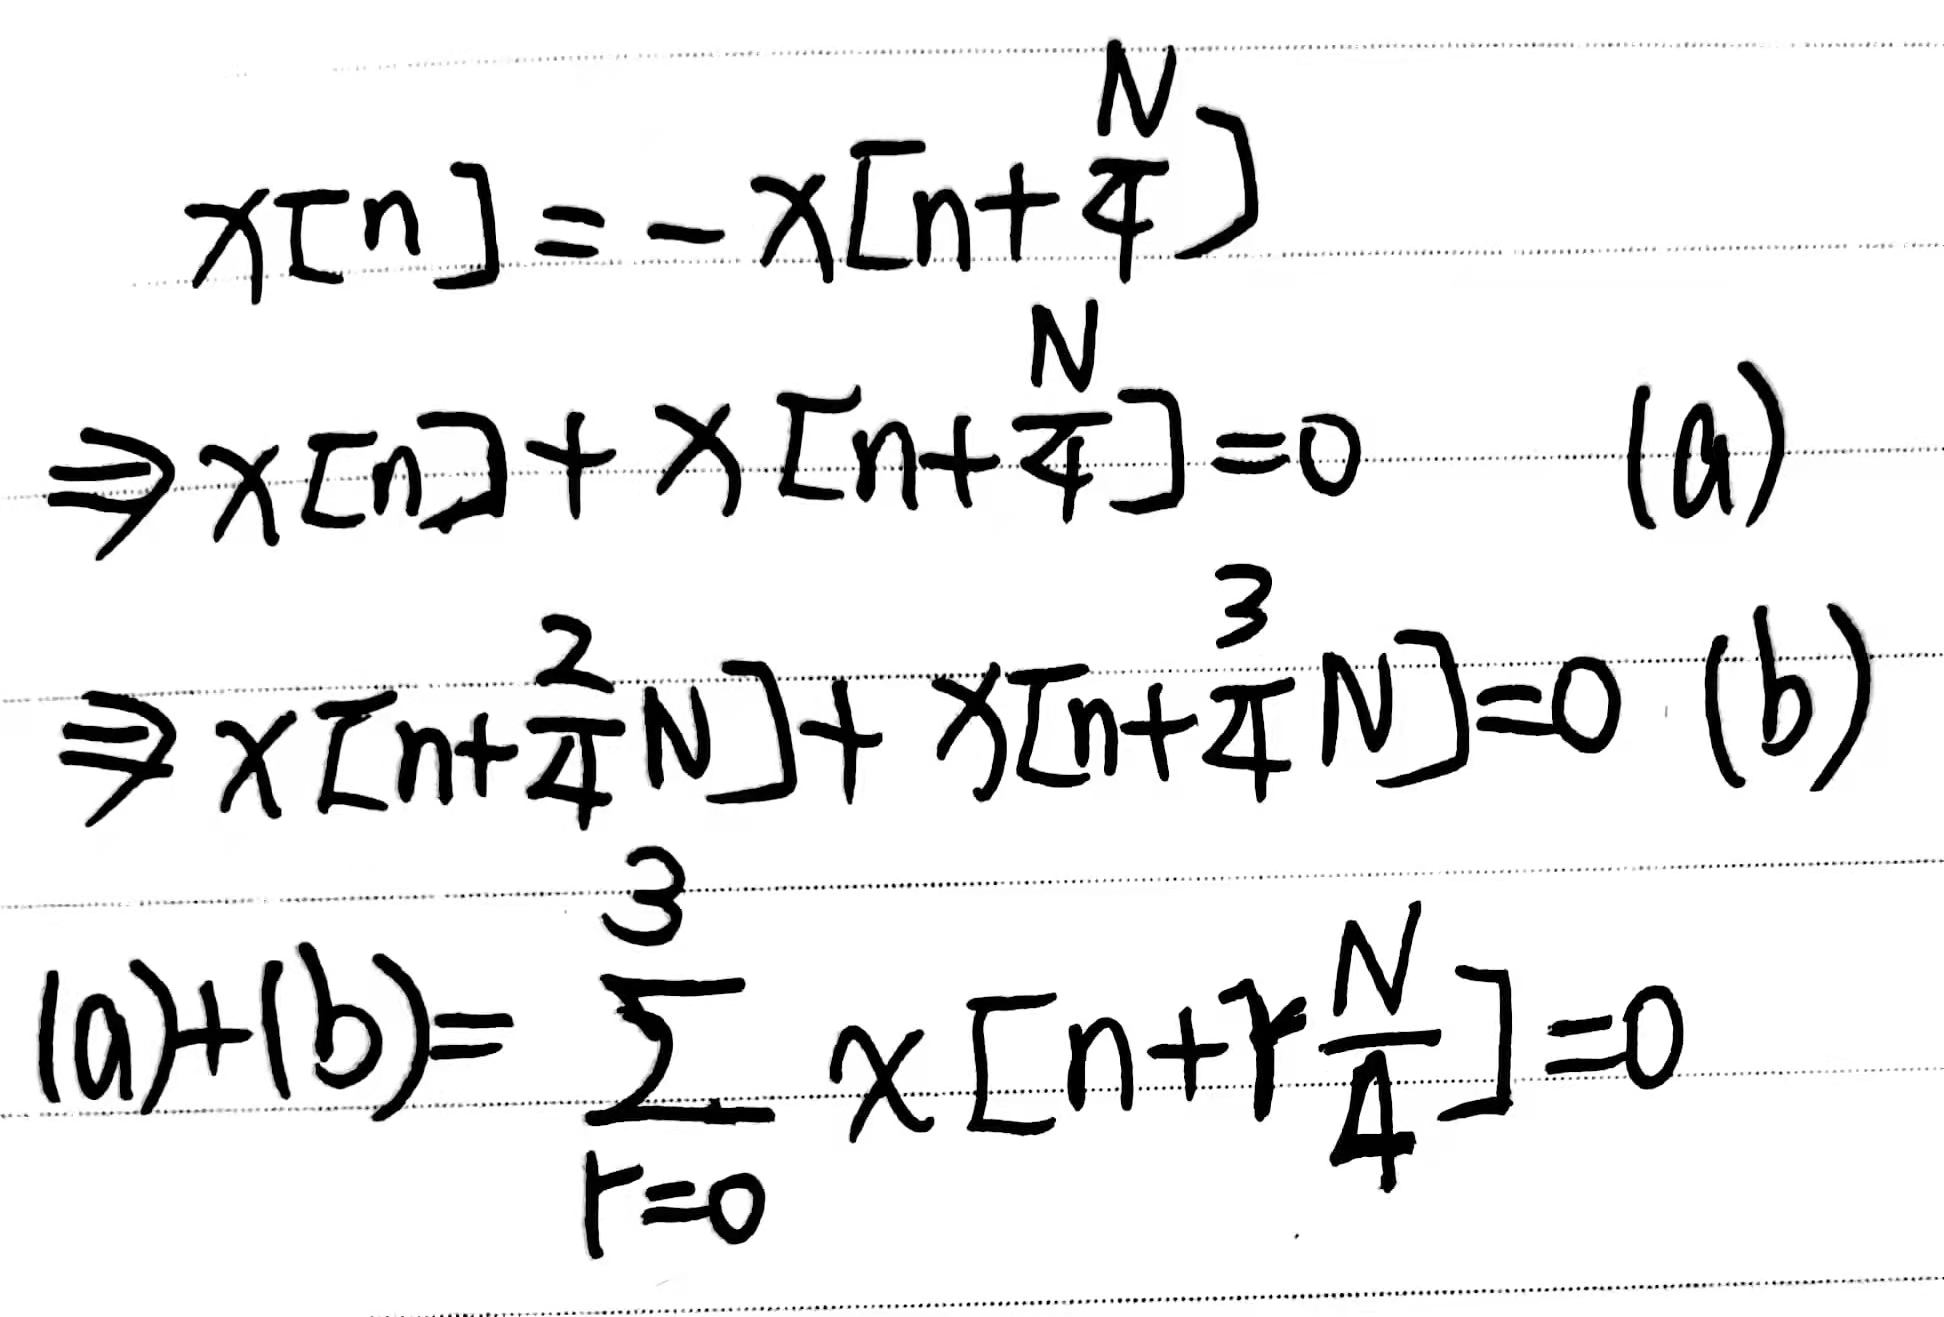 x[n] = -x[n+N/4]
⇒ x[n] + x[n+N/4] = 0 (a)
⇒ x[n+2/4 N] + x[n+3/4 N] = 0 (b)
(a)+(b) = ∑_{r=0}^{3} x[n+r N/4] = 0